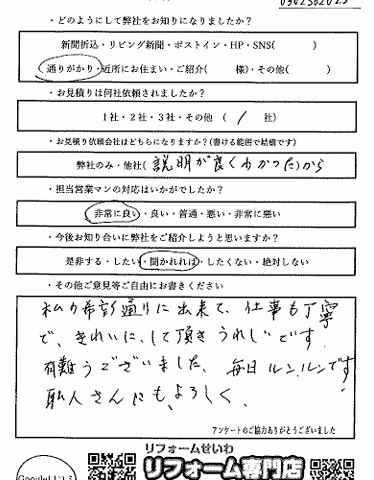 ・どのようにして弊社をお知りになりましたか？
新聞折込・リビング新聞・ポストイン・HP・SNS(　　　)
通りがかり・近所にお住まい・ご紹介(　　　様)・その他(　　　)
・お見積りは何社依頼されましたか？
1社・2社・3社・その他 ( 1 社)
・お見積り依頼会社はどちらになりますか？(書ける範囲で結構です)
弊社のみ・他社(説明が良くわかった)から
・担当営業マンの対応はいかがでしたか？
非常に良い・良い・普通・悪い・非常に悪い
・今後お知り合いに弊社をご紹介しようと思いますか？
是非する・したい・聞かれれば・したくない・絶対しない
・その他ご意見等ご自由にお書きください
私の希望通りに出来て、仕事も丁寧
で、きれいに、して頂きうれしいです
有難うございました、毎日ルンルンです!
職人さんにも、よろしく、
アンケートのご協力ありがとうございました
リフォームせいわ
リフォーム専門店
Google口コミ